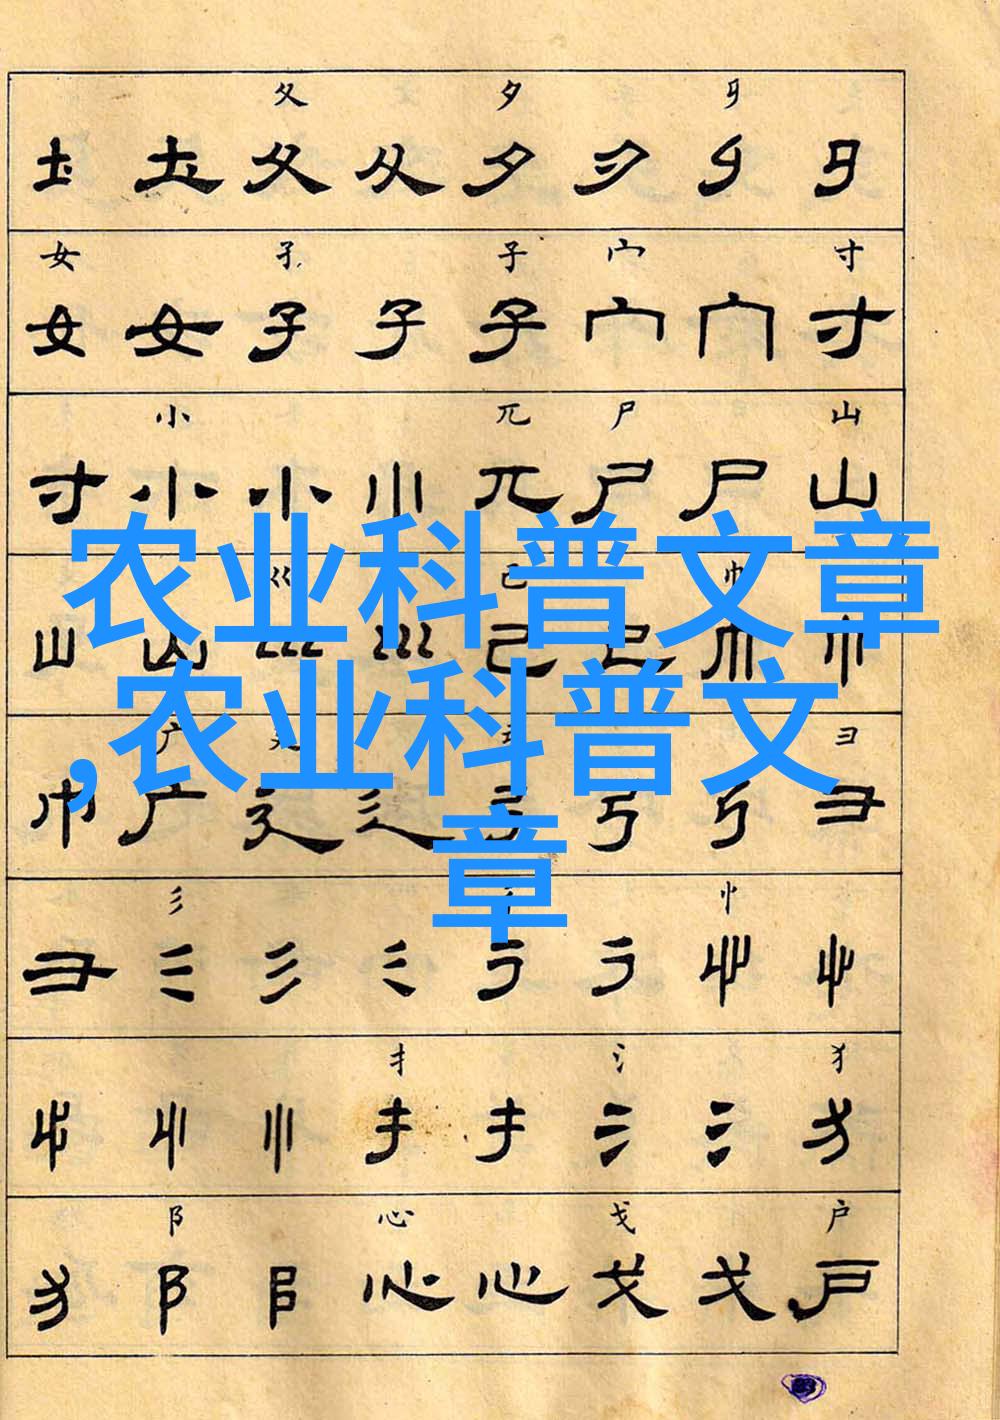 夂 夕 𠃜
土 土 夂 夂 夕 夕
女 孑 子 宀 寸
女 女 子 子 子 宀 宀 寸
小 兀 尸 山
寸 小 小 小 兀 尸 尸 山
农业科普文章
巛 己 巾
山 山 巛 巛 己 己 巾 巾
,农业科普文
广 廴 彐
巾 广 廴 廴 弓 弓 弓 彐
章
彡 忄
彐 彡 彡 彡 忄 忄
扌 氵 犭
忄 忄 忄 扌 扌 氵 氵 犭
阝 心 戈 户
犭 阝 阝 心 心 戈 戈 户